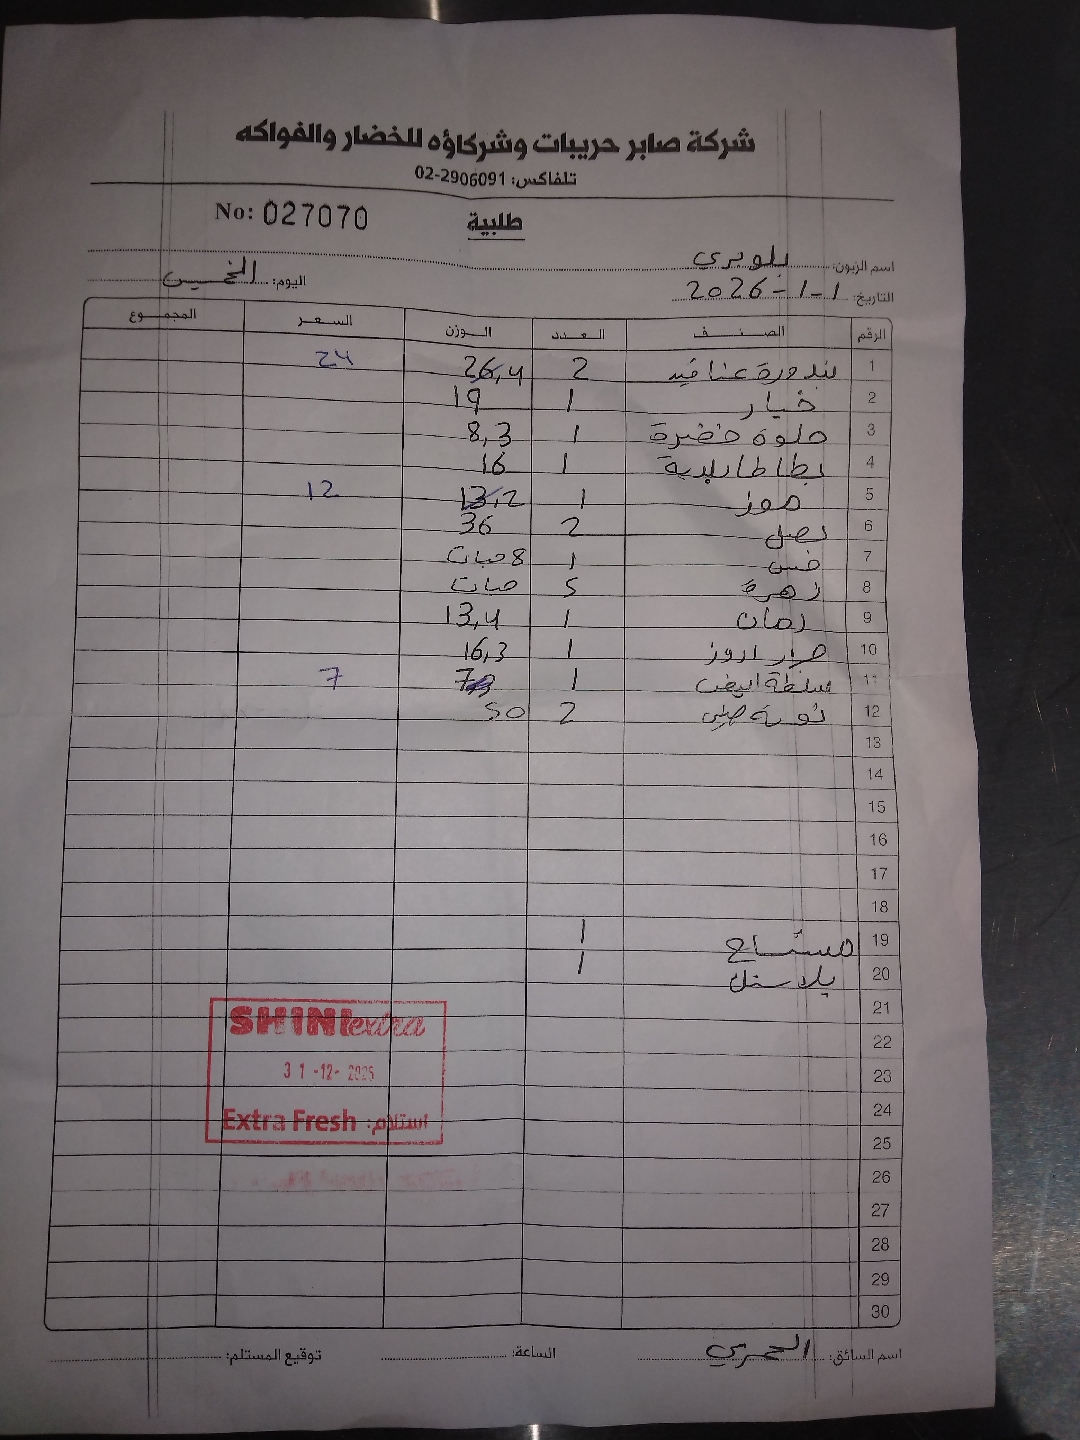 شركة صابر حريبات وشركاؤه للخضار والفواكه
تلفاكس: 02-2906091
طلبية No: 027070
اسم الزبون: بلوبري
التاريخ: 1-1-2026 اليوم: الخميس
الرقم الصنف العدد الوزن السعر المجموع
1 بندورة عناقيد 2 26,4 24
2 خيار 1 19
3 حلوة خضرة 1 8,3
4 بطاطا بلدية 1 16
5 موز 1 13,2 12
6 بصل 2 36
7 خس 1 8 حبات
8 زهرة 5 حبات
9 رمان 1 13,4
10 1 16,3
11 سلطة ابيض 1 7
12 2 50
13
14
15
16
17
18
19 مشتاح 1
20 بلاستك 1
21
22
23
24
25
26
27
28
29
30
SHINI extra
31-12-2025
استلام: Extra Fresh
اسم السائق: العمري الساعة: توقيع المستلم: